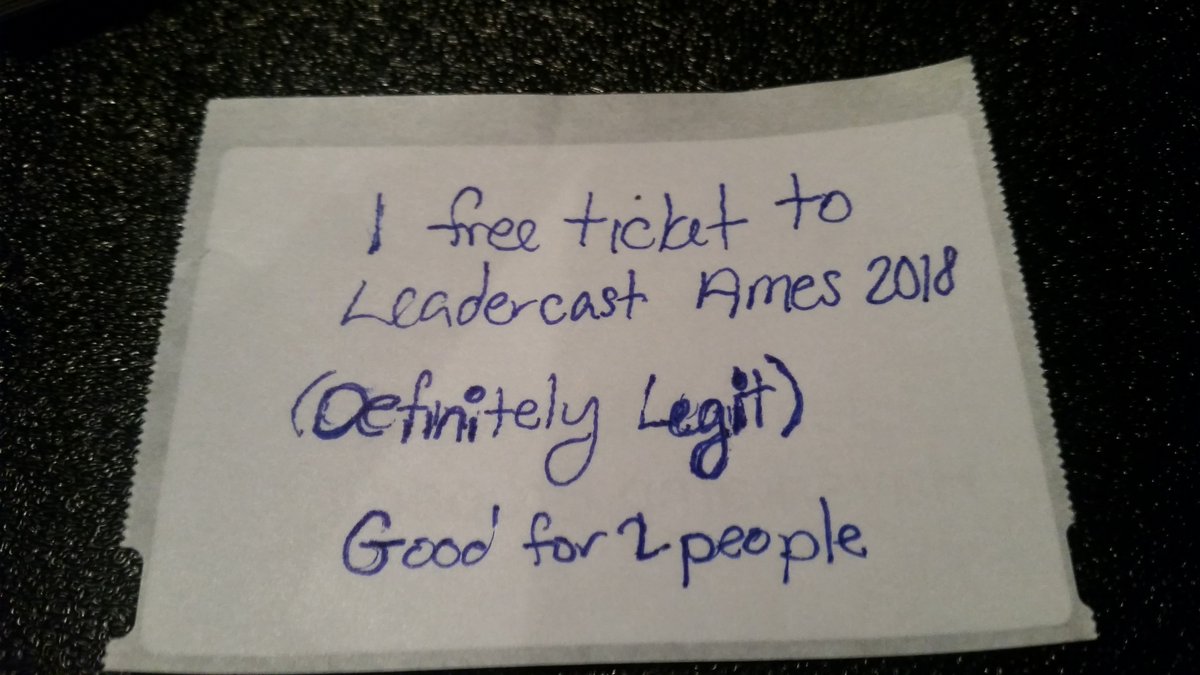 1 free ticket to
Leadercast Ames 2018
(Definitely Legit)
Good for 2 people